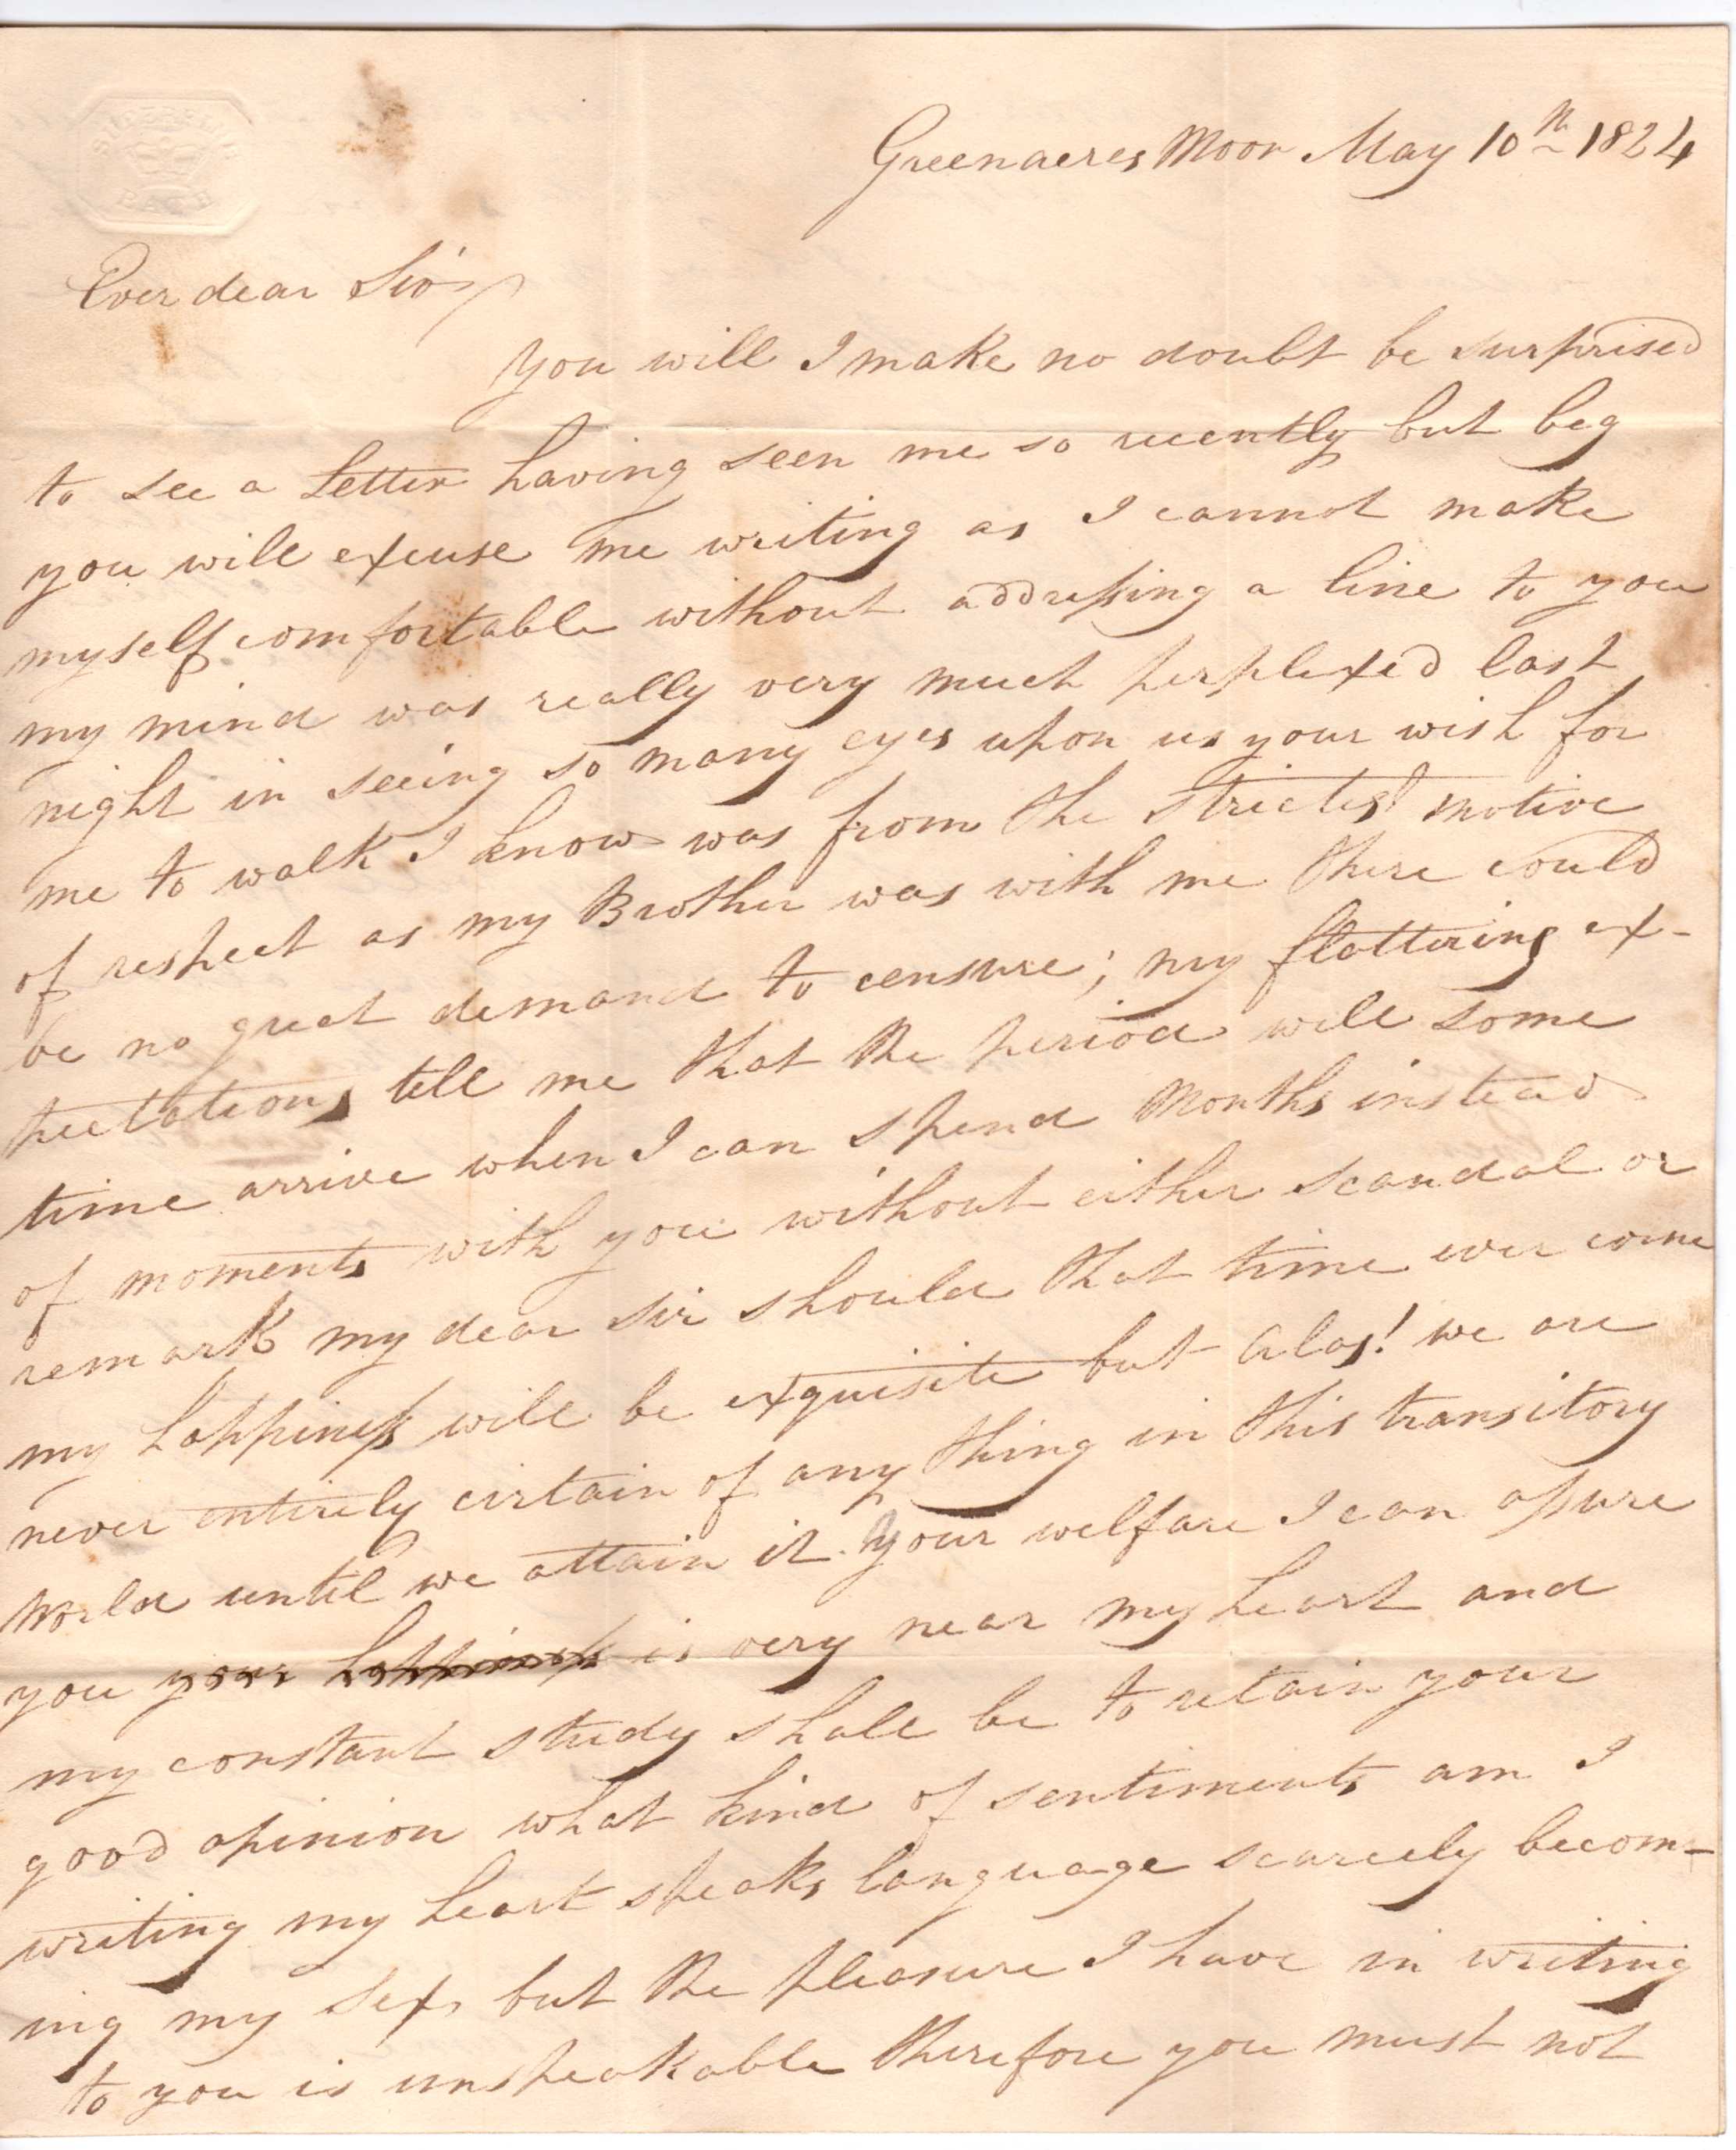 SUPERFINE
BATH
Greenacres Moor May 10th 1824
Ever dear Sir
You will I make no doubt be surprised
to see a Letter having seen me so recently but beg
you will excuse me writing as I cannot make
myself comfortable without addressing a line to you
my mind was really very much perplexed last
night in seeing so many eyes upon us your wish for
me to walk I know was from the strictest motive
of respect as my Brother was with me there could
be no great demand to censure; my flattering ex-
pectations tell me that the period will some
time arrive when I can spend Months instead
of moments with you without either scandal or
remark my dear sir should that time ever come
my happiness will be exquisite but Alas! we are
never entirely certain of any thing in this transitory
World until we attain it. Your welfare I can assure
you your happiness is very near my heart and
my constant study shall be to retain your
good opinion what kind of sentiments am I
writing my heart speaks language scarcely becom-
ing my sex, but the pleasure I have in writing
to you is unspeakable therefore you must not